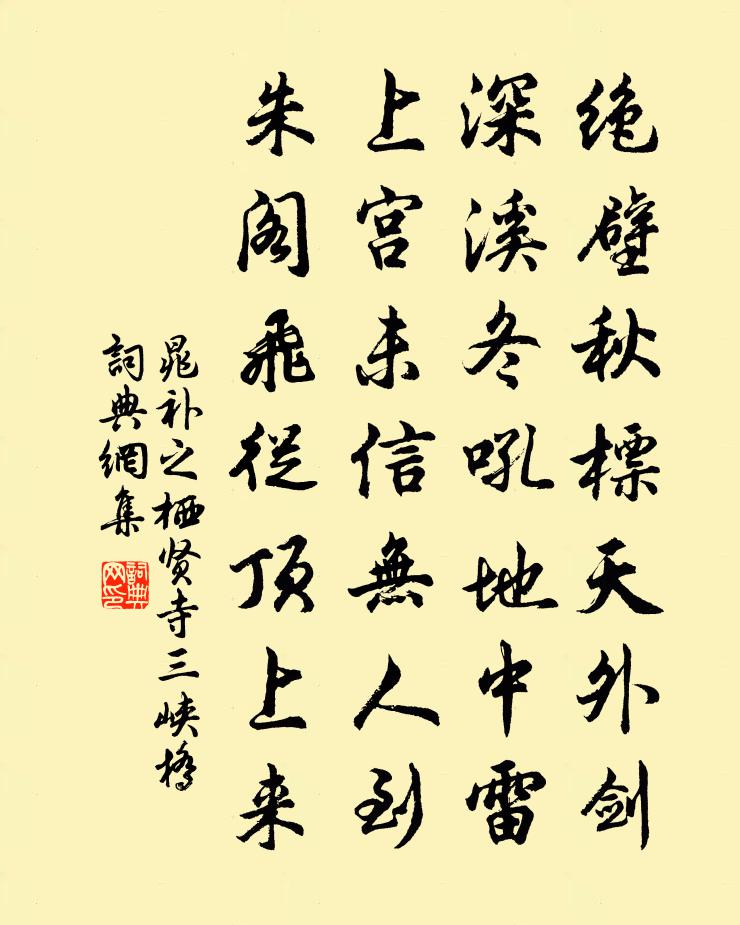 绝壁秋標天外剑
深溪冬吼地中雷
上宫未信無人到
朱阁飛從顶上来
晁补之栖贤寺三峡橋
詞典網集
詞典网印